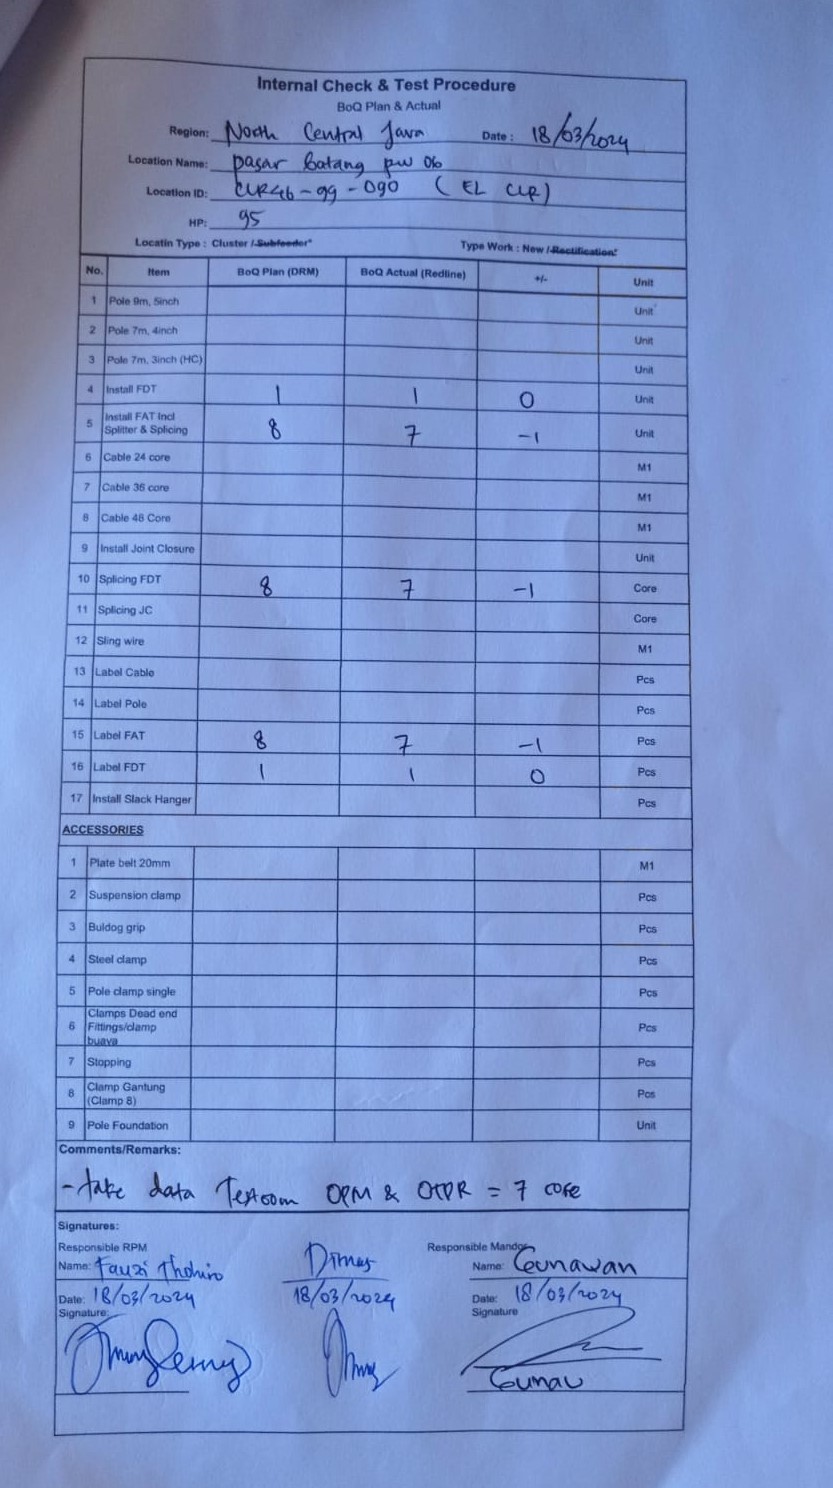 Internal Check & Test Procedure
BoQ Plan & Actual
Region: North Central Java Date : 18/03/2024
Location Name: pasar Batang pw 06
Location ID: CLR46-99-090 ( EL CLR)
HP: 95
Locatin Type : Cluster /-Subfeeder* Type Work : New /-Rectification*
No. Item BoQ Plan (DRM) BoQ Actual (Redline) +/- Unit
1 Pole 9m, 5inch Unit
2 Pole 7m, 4inch Unit
3 Pole 7m, 3inch (HC) Unit
4 Install FDT 1 1 0 Unit
5 Install FAT Incl Splitter & Splicing 8 7 -1 Unit
6 Cable 24 core M1
7 Cable 36 core M1
8 Cable 48 Core M1
9 Install Joint Closure Unit
10 Splicing FDT 8 7 -1 Core
11 Splicing JC Core
12 Sling wire M1
13 Label Cable Pcs
14 Label Pole Pcs
15 Label FAT 8 7 -1 Pcs
16 Label FDT 1 1 0 Pcs
17 Install Slack Hanger Pcs
ACCESSORIES
1 Plate belt 20mm M1
2 Suspension clamp Pcs
3 Buldog grip Pcs
4 Steel clamp Pcs
5 Pole clamp single Pcs
6 Clamps Dead end Fittings/clamp buaya Pcs
7 Stopping Pcs
8 Clamp Gantung (Clamp 8) Pcs
9 Pole Foundation Unit
Comments/Remarks:
- take data Testcom OPM & OTDR = 7 core
Signatures:
Responsible RPM Responsible Mandor
Name: Fauzi Thohiro Dimas Name: Gunawan
Date: 18/03/2024 18/03/2024 Date: 18/03/2024
Signature: Signature
Gunau